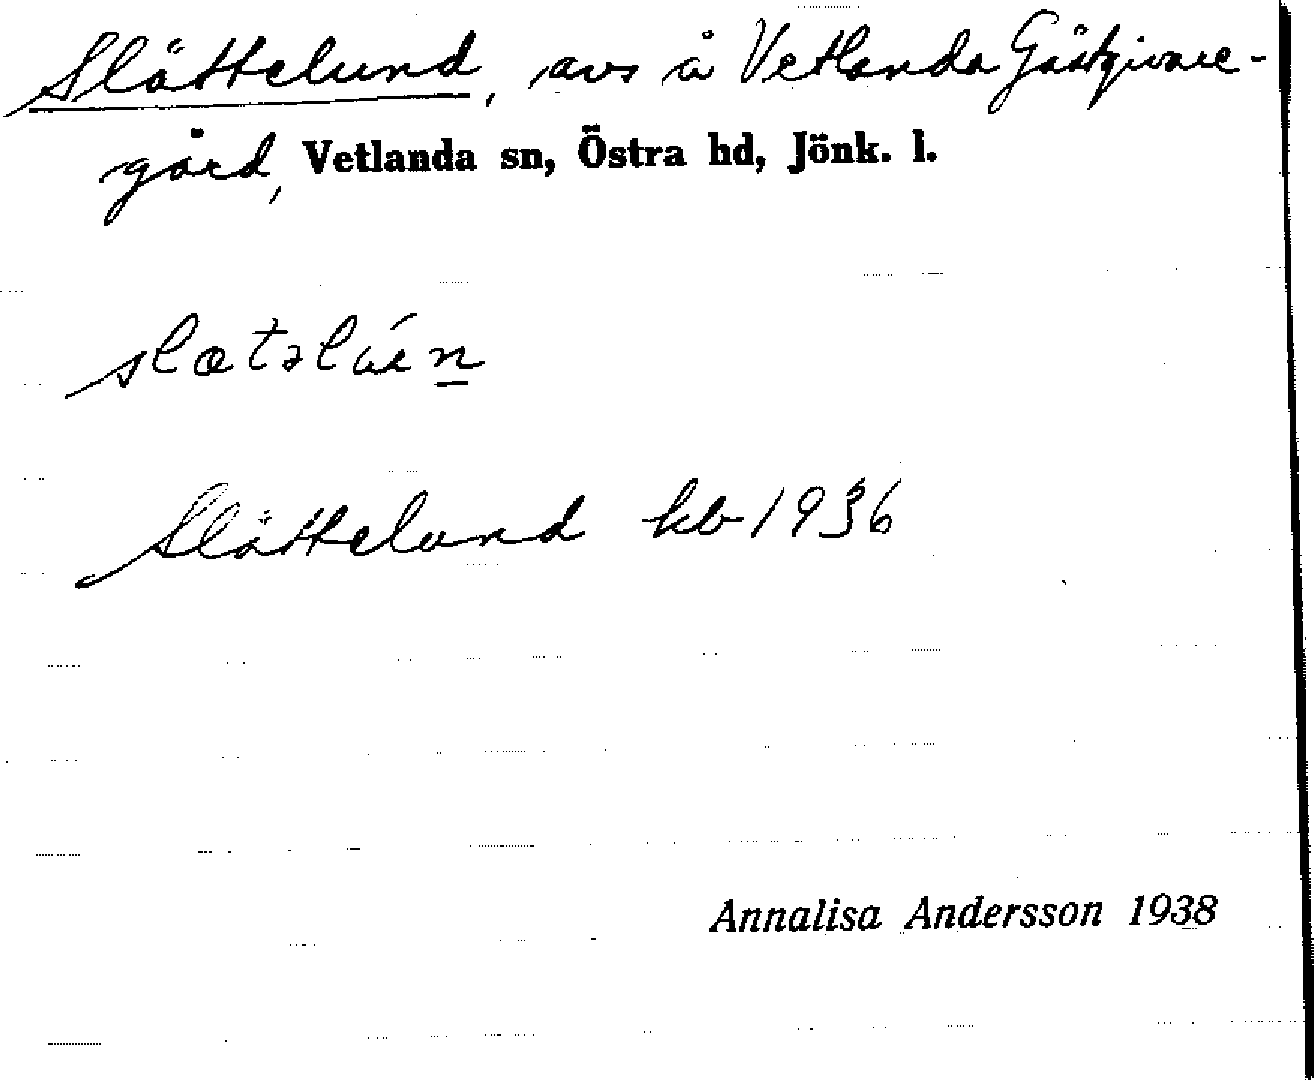 Slättelund, avs å Vetlanda Gästgivare-
gård, Vetlanda sn, Östra hd, Jönk. l.
Slättelund kb 1936
Annalisa Andersson 1938